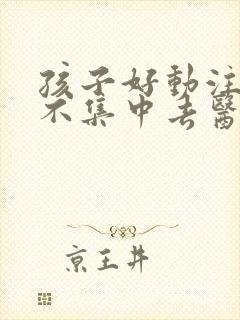 孩子好動注
不集中去醫
京王井